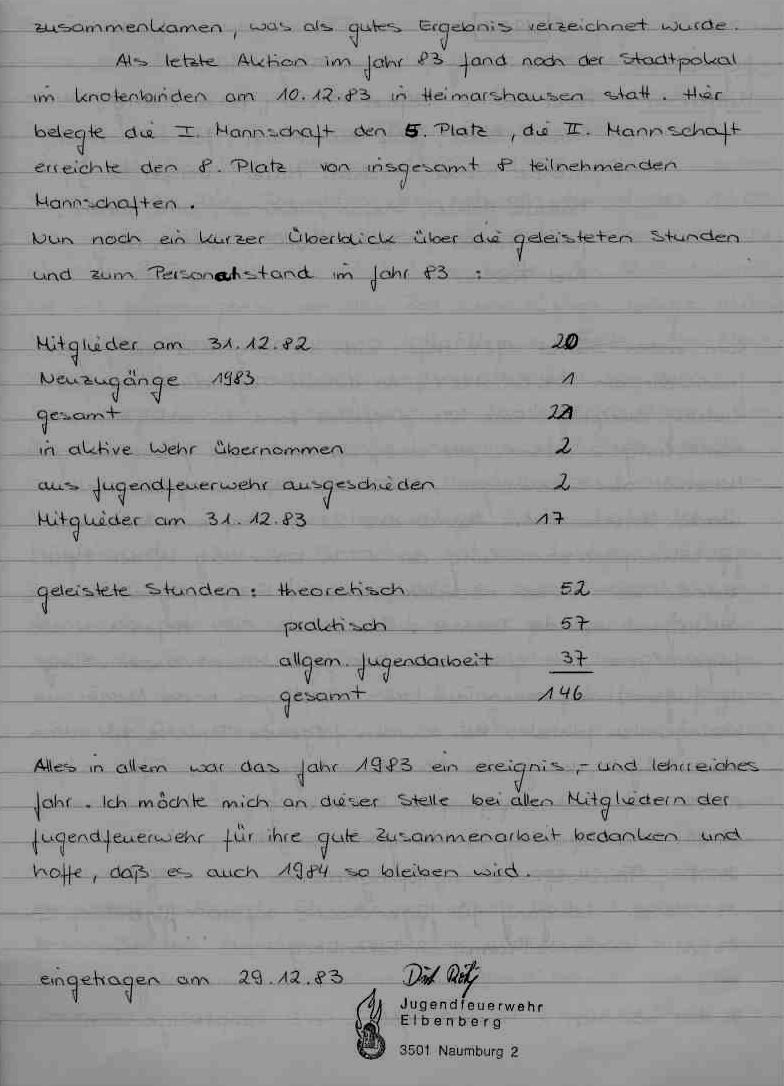 zusammenkamen, was als gutes Ergebnis verzeichnet wurde.
Als letzte Aktion im Jahr 83 fand noch der Stadtpokal
im Knotenbinden am 10.12.83 in Heimarshausen statt. Hier
belegte die I. Mannschaft den 5. Platz, die II. Mannschaft
erreichte den 8. Platz von insgesamt 8 teilnehmenden
Mannschaften.
Nun noch ein kurzer Überblick über die geleisteten Stunden
und zum Personalstand im Jahr 83 :
Mitglieder am 31.12.82 20
Neuzugänge 1983 1
gesamt 21
in aktive Wehr übernommen 2
aus Jugendfeuerwehr ausgeschieden 2
Mitglieder am 31.12.83 17
geleistete Stunden : theoretisch 52
praktisch 57
allgem. Jugendarbeit 37
gesamt 146
Alles in allem war das Jahr 1983 ein ereignis,- und lehrreiches
Jahr. Ich möchte mich an dieser Stelle bei allen Mitgliedern der
Jugendfeuerwehr für ihre gute Zusammenarbeit bedanken und
hoffe, daß es auch 1984 so bleiben wird.
eingetragen am 29.12.83
Jugendfeuerwehr
Elbenberg
3501 Naumburg 2